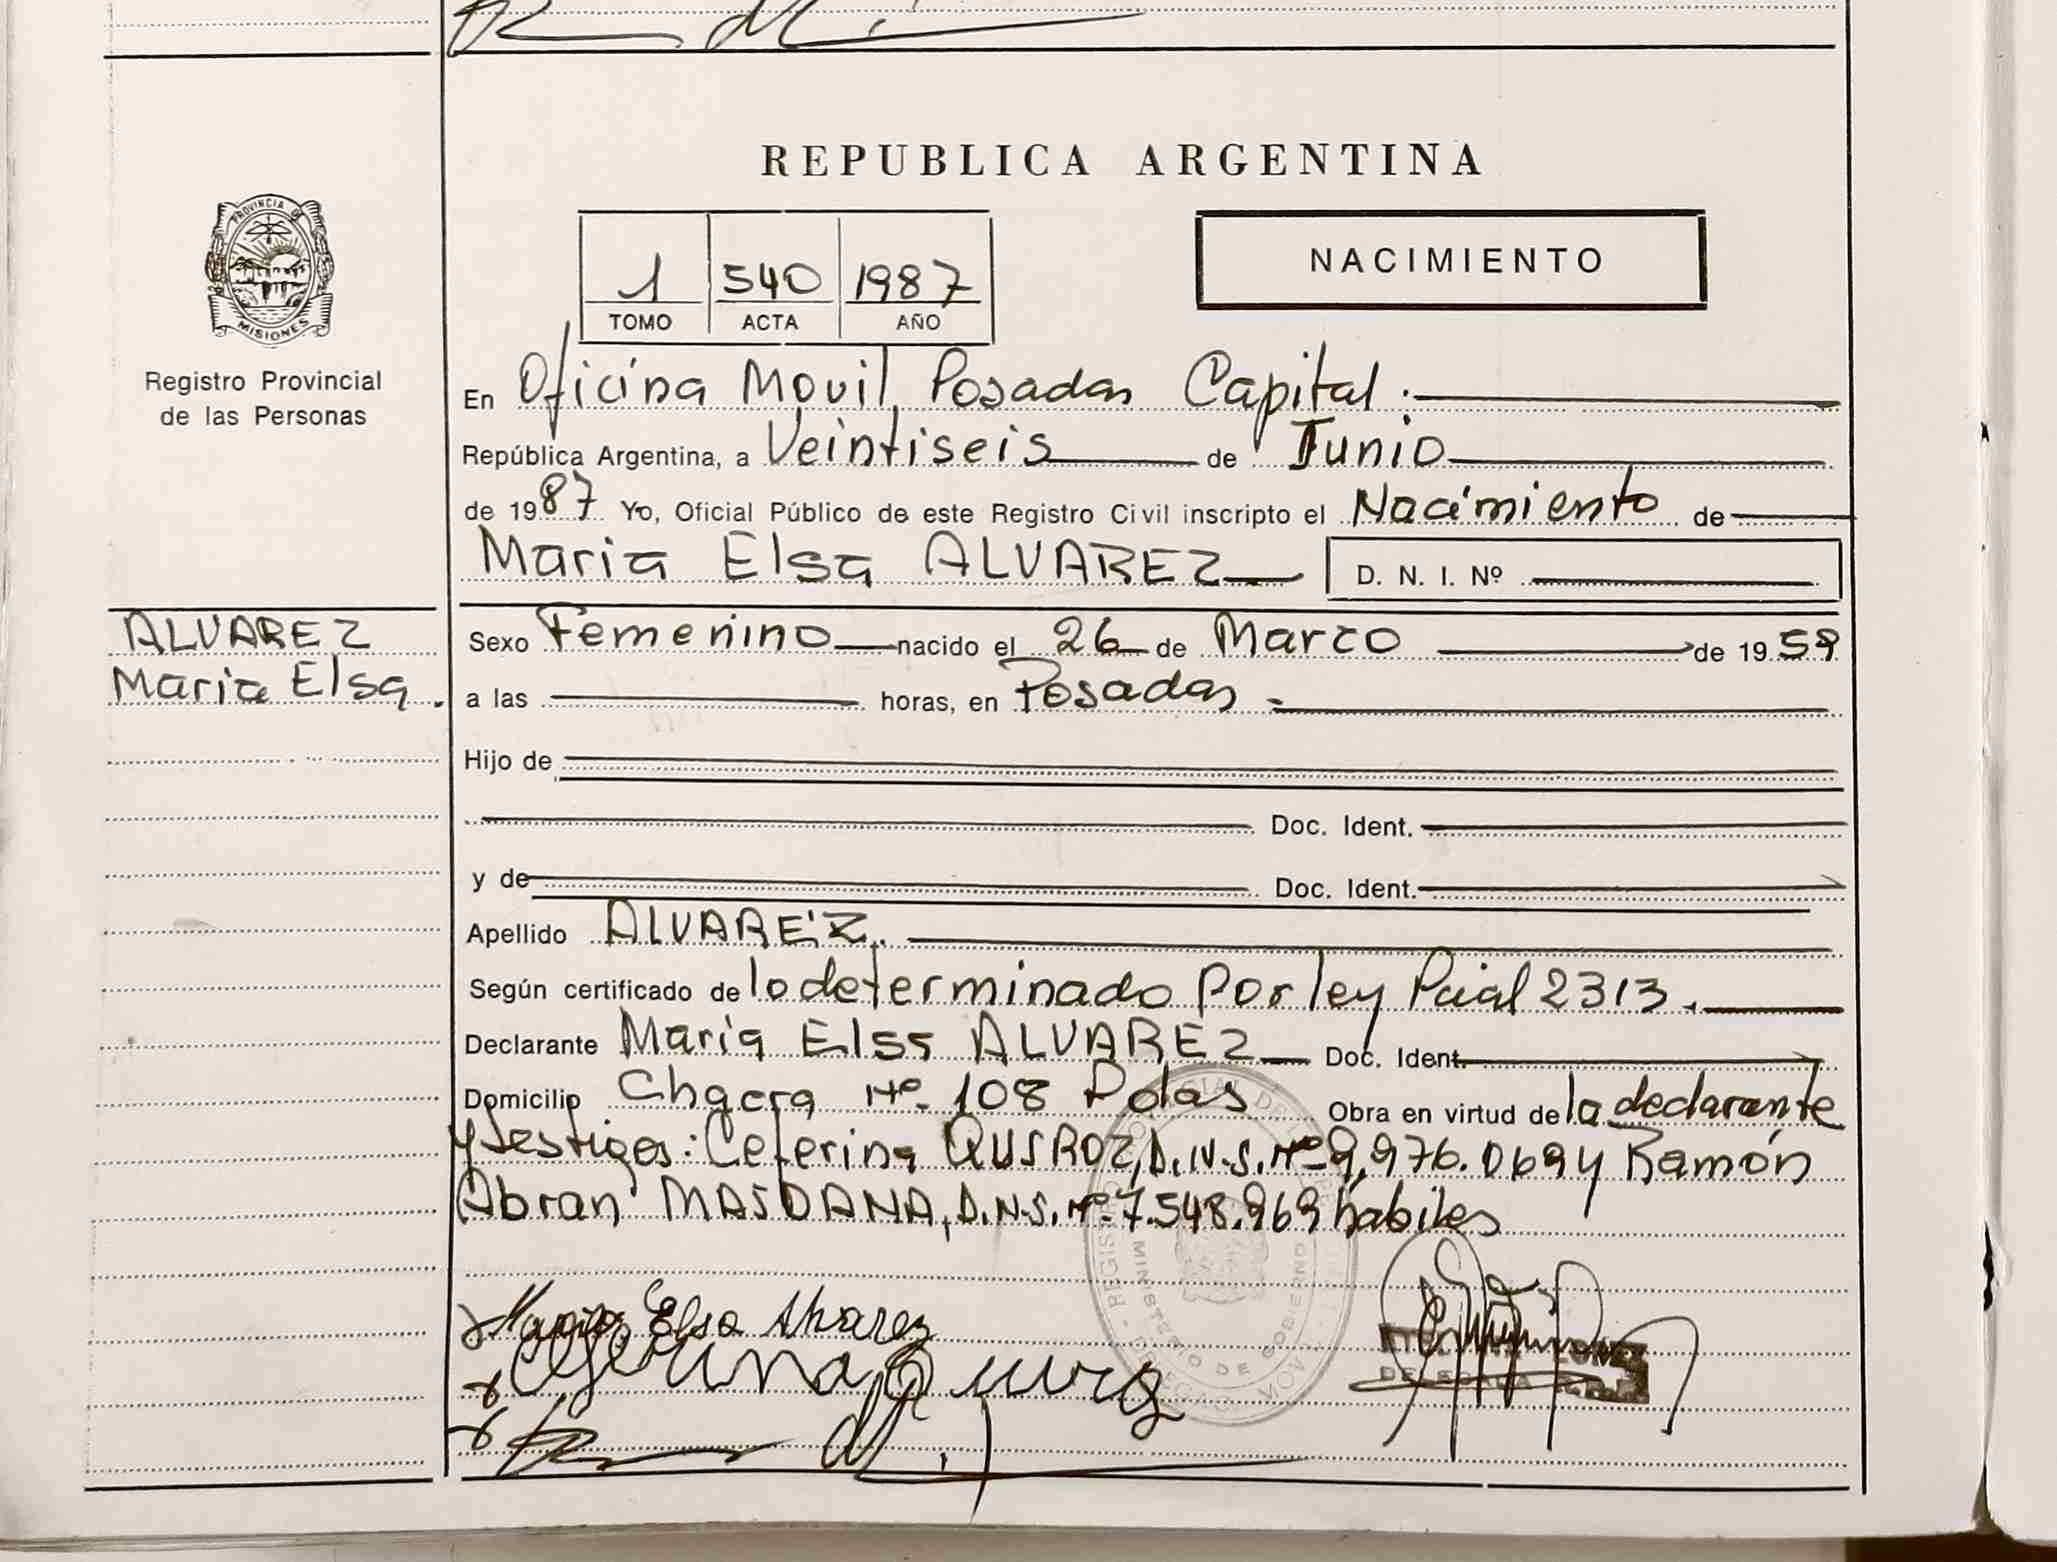 REPUBLICA ARGENTINA
PROVINCIA DE
MISIONES
Registro Provincial
de las Personas
1 540 1987
TOMO ACTA AÑO
NACIMIENTO
En Oficina Movil Posadas Capital.
República Argentina, a Veintiseis de Junio
de 1987 Yo, Oficial Público de este Registro Civil inscripto el Nacimiento de
Maria Elsa ALVAREZ D. N. I. Nº
ALVAREZ
Maria Elsa.
Sexo Femenino nacido el 26 de Marzo de 1959
a las horas, en Posadas.
Hijo de
Doc. Ident.
y de Doc. Ident.
Apellido ALVAREZ.
Según certificado de lo determinado por ley Pcial 2313.
Declarante Maria Elsa ALVAREZ Doc. Ident.
Domicilio Chacra Nº 108 Pdas Obra en virtud de la declarante
y testigos: Ceferina D.N.I. Nº 9.976.069 y Ramón
Abran D.N.I. Nº 7.548.969 habiles
MINISTERIO DE GOBIERNO
Maria Elsa Alvarez
Ceferina